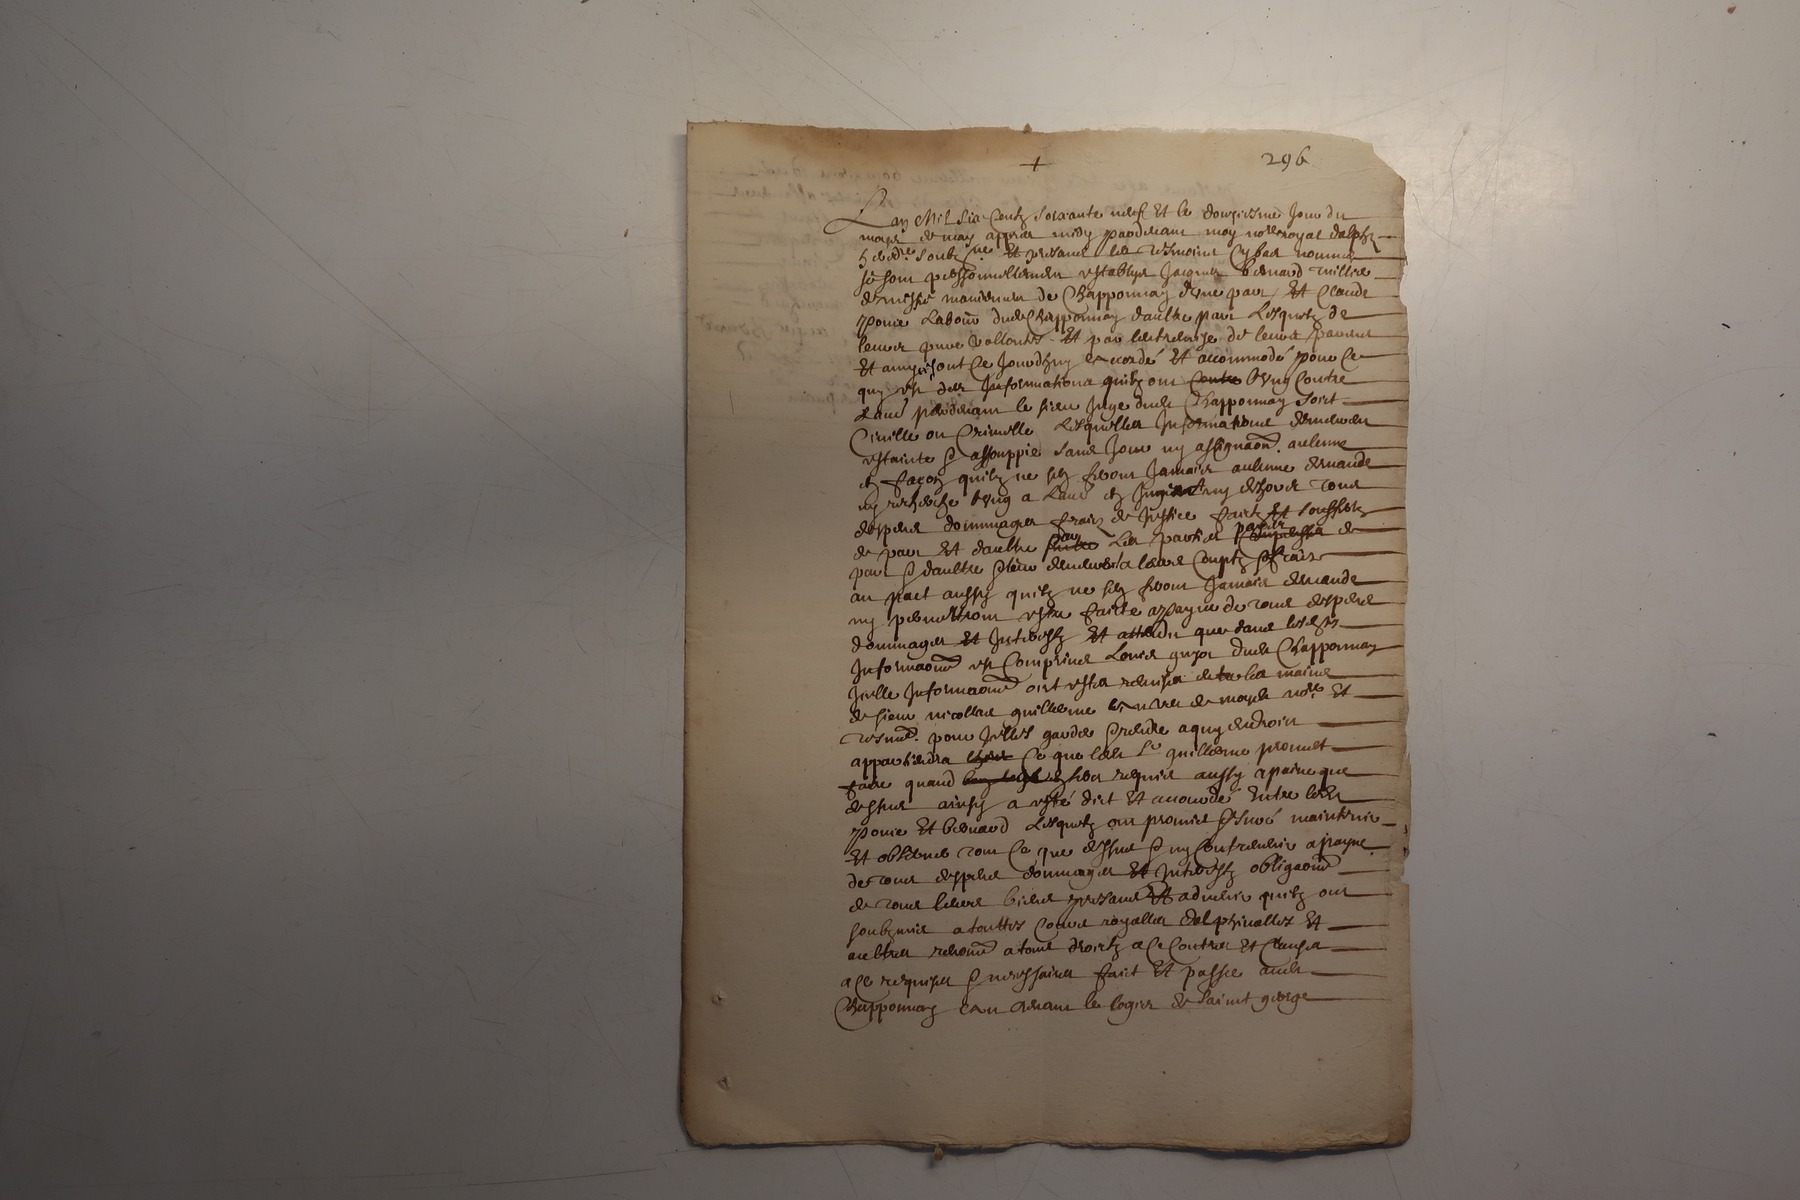 +
296
Lan Mil Six Centz soixante neuf Et le douziesme Jour du
moys de may appres midy pardevant moy no.re royal dalph.
heredit.re soubz.né Et presans les tesmoins Cy bas nommes
se sont personnellement establys Jacques bernard
de Chapponnay d'une part Et Claude
ponce Labour. dud. Chapponnay daultre part Lesquelz de
leurs pure vollontés Et par lentremise de leurs parans
Et amys sont Ce Jourdhuy accordé Et accommodé pour Ce
quy est des Informations quilz ont contre lung contre
lautre pardevant le sieur Juge dud. Chapponnay soit
Civille ou Criminelle Lesquelles Informations demeurent
estainte & assouppie sans Jour ny assignaon. aulcune
en facon quilz ne sen feront Jamais aulcune demande
ny recherche lung a lautre en Jugemant ny dehors tous
despens dommages frais de Justice faictz Et souffertz
de part Et daultre par Les parties de
part & daultre demeurent a leurs Comptz & frais
au pact aussy quilz ne sen feront Jamais demande
ny permettront estre faicte a payne de tous despens
dommages Et Interestz Et attendu que dans lesd.
Informaons est Comprins Louis guyot dud. Chapponnay
Icelle Informaons ont estes remises entre les mains
de sieur nicollas guillerme de no.re Et
tesmns. pour Icelles garder & rendre a quy endroict
appartiendra Ce que led. Sr guillerme promet
faire quand en sera requis aussy a peine que
dessus ainsy a esté dict Et accordé Entre lesd.
ponce Et bernard Lesquelz ont promis & Juré maintenir
Et observer tout Ce que dessus & ny Contrevenir a payne
de tous despens dommages Et Interestz obligaons
de tous leurs biens presans Et advenir quilz ont
soubzmis a touttes Cours royalles dalphinalles Et
aultres renons a tous droictz a Ce Contres Et Clauses
a Ce requises & necessaires faict Et passe aud.
Chapponnay devant le logis de Saint george